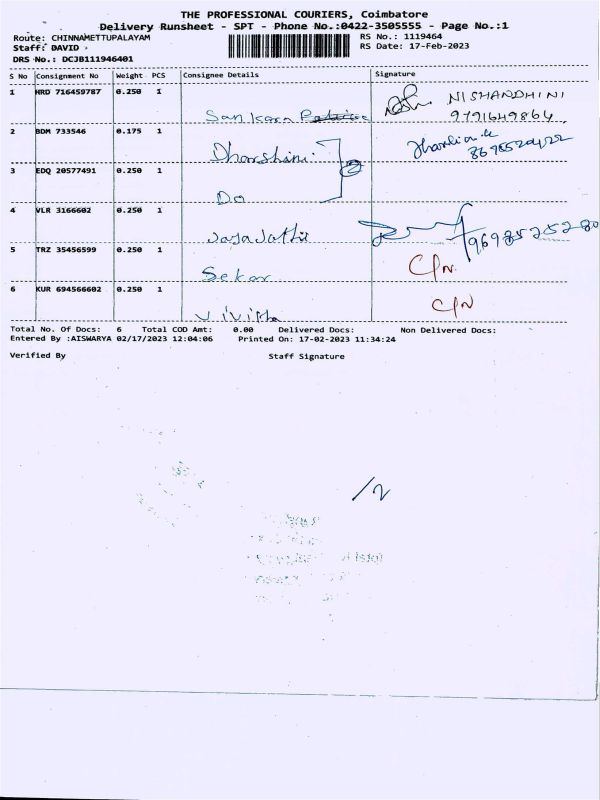 THE PROFESSIONAL COURIERS, Coimbatore
Delivery Runsheet - SPT - Phone No.:0422-3505555 - Page No.:1
Route: CHINNAMETTUPALAYAM RS No.: 1119464
Staff: DAVID RS Date: 17-Feb-2023
DRS No.: DCJB111946401
S No Consignment No Weight PCS Consignee Details Signature
1 HRD 716459787 0.250 1
NISHANDHINI
Sankara 9791649864
2 BDM 733546 0.175 1
Dharshini
3 EDQ 20577491 0.250 1
Do
4 VLR 3166602 0.250 1
9698525280
5 TRZ 35456599 0.250 1 C/N
Sekar
6 KUR 694566602 0.250 1 C/N
Total No. Of Docs: 6 Total COD Amt: 0.00 Delivered Docs: Non Delivered Docs:
Entered By :AISWARYA 02/17/2023 12:04:06 Printed On: 17-02-2023 11:34:24
Verified By Staff Signature
/2